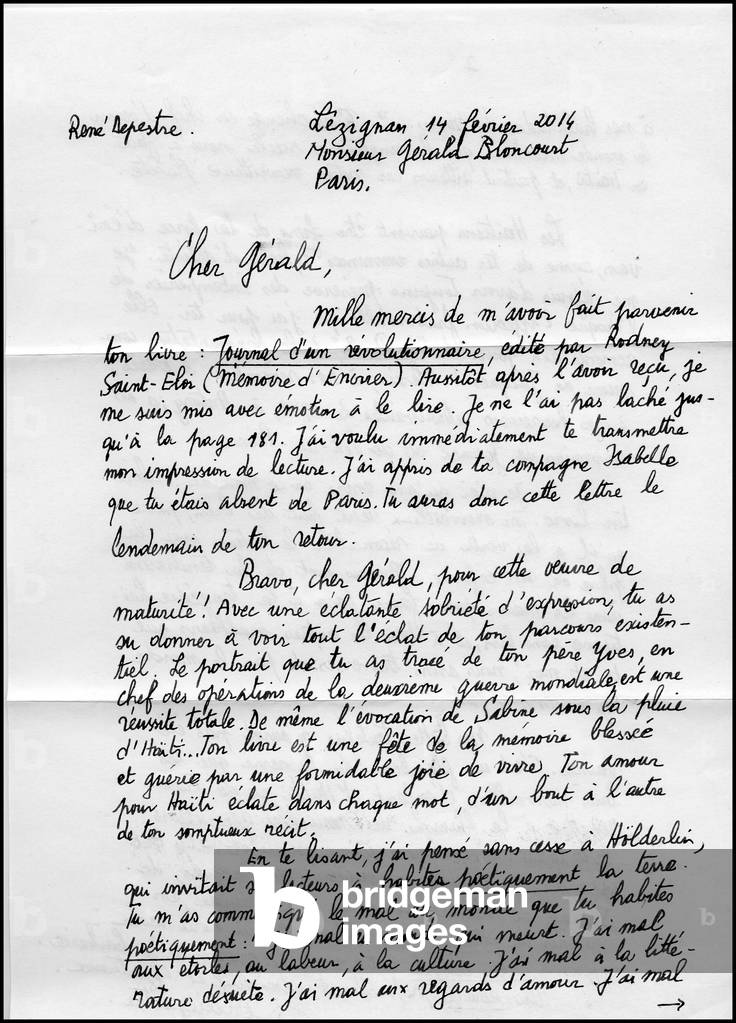 René Depestre.
Lézignan 14 février 2014
Monsieur Gérald Bloncourt
Paris.
Cher Gérald,
Mille mercis de m'avoir fait parvenir
ton livre : Journal d'un révolutionnaire, édité par Rodney
Saint-Eloi (Mémoire d'Encrier). Aussitôt après l'avoir reçu, je
me suis mis avec émotion à le lire. Je ne l'ai pas laché jus-
qu'à la page 181. J'ai voulu immédiatement te transmettre
mon impression de lecture. J'ai appris de ta compagne Isabelle
que tu étais absent de Paris. Tu auras donc cette lettre le
lendemain de ton retour.
Bravo, cher Gérald, pour cette oeuvre de
maturité ! Avec une éclatante sobriété d'expression, tu as
su donner à voir tout l'éclat de ton parcours existen-
tiel. Le portrait que tu as tracé de ton père Yves, en
chef des opérations de la deuxième guerre mondiale, est une
réussite totale. De même l'évocation de Sabine sous la pluie
d'Haïti... Ton livre est une fête de la mémoire blessée
et guérie par une formidable joie de vivre. Ton amour
pour Haïti éclate dans chaque mot, d'un bout à l'autre
de ton somptueux récit.
En te lisant, j'ai pensé sans cesse à Hölderlin,
qui invitait lecteurs à habiter poétiquement la terre.
Tu m'as le mal du monde que tu habites
poétiquement : mal qui meurt. J'ai mal
aux étoiles, au labeur, à la culture. J'ai mal à la litté-
rature désuète. J'ai mal aux regards d'amour. J'ai mal
→
bridgeman
images